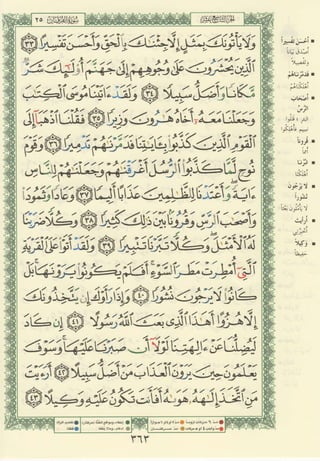 سورة الفرقان ٢٥
الجزء التاسع عشر
وَلَا يَأْتُونَكَ بِمَثَلٍ إِلَّا جِئْنَٰكَ بِٱلْحَقِّ وَأَحْسَنَ تَفْسِيرًا ٣٣
ٱلَّذِينَ يُحْشَرُونَ عَلَىٰ وُجُوهِهِمْ إِلَىٰ جَهَنَّمَ أُو۟لَٰٓئِكَ شَرٌّ
مَّكَانًا وَأَضَلُّ سَبِيلًا ٣٤ وَلَقَدْ ءَاتَيْنَا مُوسَى ٱلْكِتَٰبَ
وَجَعَلْنَا مَعَهُۥٓ أَخَاهُ هَٰرُونَ وَزِيرًا ٣٥ فَقُلْنَا ٱذْهَبَآ إِلَى
ٱلْقَوْمِ ٱلَّذِينَ كَذَّبُوا۟ بِـَٔايَٰتِنَا فَدَمَّرْنَٰهُمْ تَدْمِيرًا ٣٦ وَقَوْمَ
نُوحٍ لَّمَّا كَذَّبُوا۟ ٱلرُّسُلَ أَغْرَقْنَٰهُمْ وَجَعَلْنَٰهُمْ لِلنَّاسِ
ءَايَةً وَأَعْتَدْنَا لِلظَّٰلِمِينَ عَذَابًا أَلِيمًا ٣٧ وَعَادًا وَثَمُودَا۟
وَأَصْحَٰبَ ٱلرَّسِّ وَقُرُونًۢا بَيْنَ ذَٰلِكَ كَثِيرًا ٣٨ وَكُلًّا ضَرَبْنَا
لَهُ ٱلْأَمْثَٰلَ وَكُلًّا تَبَّرْنَا تَتْبِيرًا ٣٩ وَلَقَدْ أَتَوْا۟ عَلَى ٱلْقَرْيَةِ
ٱلَّتِىٓ أُمْطِرَتْ مَطَرَ ٱلسَّوْءِ أَفَلَمْ يَكُونُوا۟ يَرَوْنَهَا بَلْ
كَانُوا۟ لَا يَرْجُونَ نُشُورًا ٤٠ وَإِذَا رَأَوْكَ إِن يَتَّخِذُونَكَ
إِلَّا هُزُوًا أَهَٰذَا ٱلَّذِى بَعَثَ ٱللَّهُ رَسُولًا ٤١ إِن كَادَ
لَيُضِلُّنَا عَنْ ءَالِهَتِنَا لَوْلَآ أَن صَبَرْنَا عَلَيْهَا وَسَوْفَ
يَعْلَمُونَ حِينَ يَرَوْنَ ٱلْعَذَابَ مَنْ أَضَلُّ سَبِيلًا ٤٢ أَرَءَيْتَ
مَنِ ٱتَّخَذَ إِلَٰهَهُۥ هَوَىٰهُ أَفَأَنتَ تَكُونُ عَلَيْهِ وَكِيلًا ٤٣
أحسن تفسيراً
فدمرناهم
أصحاب
الرس
قروناً
تبرنا
لا يرجون
نشوراً
أرأيت
وكيلاً
حفيظاً
٣٦٣